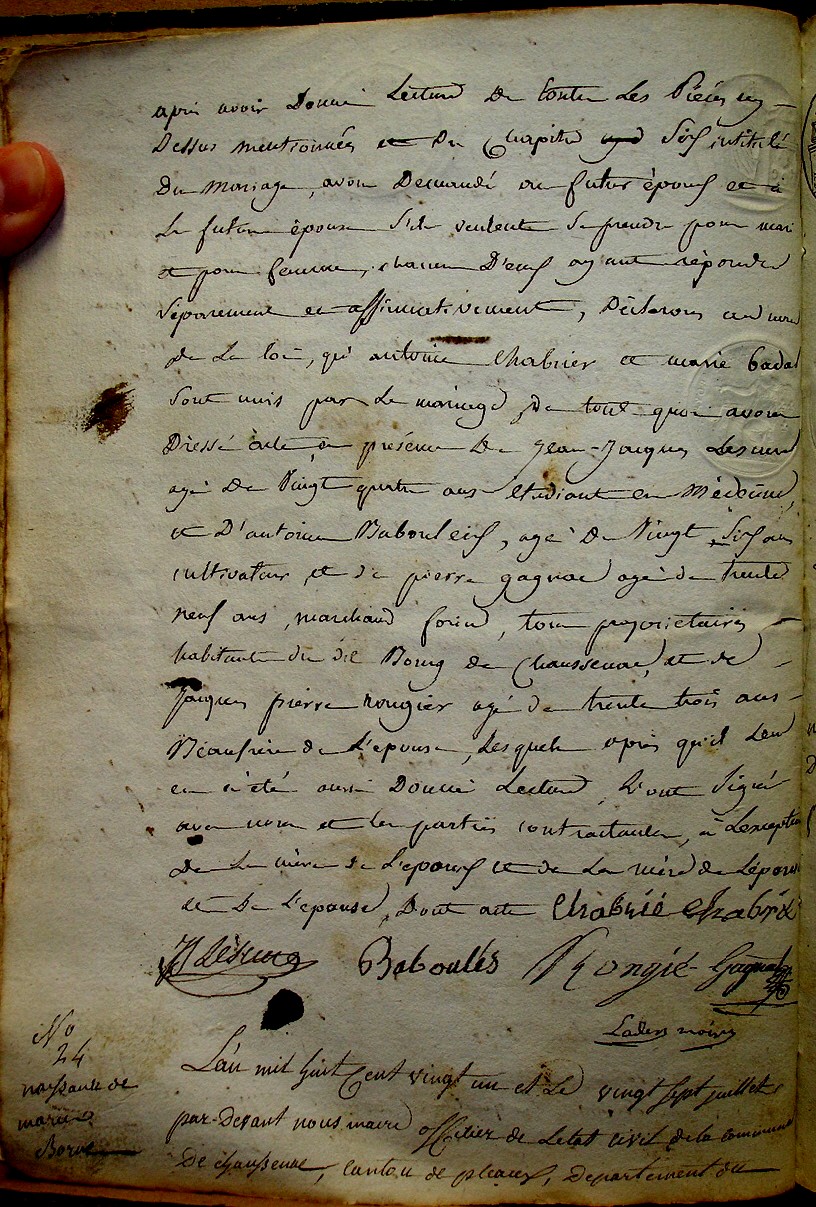 après avoir Donné Lecture De toutes Les Pièces cy
Dessus mentionnées et Du Chapitre Six intitulé
Du Mariage, avons Demandé au futur époux et à
La future épouse s'ils veulent se prendre pour mari
et pour femme, chacun D'eux ayant répondu
séparement et affirmativement, Déclarons au nom
de La loi, que antoine Chabrier et marie badal
sont unis par Le mariage, De tout quoi avons
Dressé acte en présence De Jean-Jacques Lesure
agé De Vingt quatre ans étudiant en Médecine,
et D'antoine Babouleix, agé De Vingt Six ans
cultivateur, et de pierre gagnac agé de trente
neuf ans, marchand forin, tous proprietaires
habitants du dit Bourg de Chaussenac, et de
Jacques pierre rougier agé de trente trois ans
Béaufrère de L'épouse, Lesquels après qu'il Leur
en a été aussi Donné Lecture, L'ont signé
avec nous et les parties contractantes, à Lexception
De La mère de L'epoux et de La mère de Lépouse
et De L'épouse, Dont acte Chabrié Chabrié
JJ Lesure Baboulés Rongié Gagnac
No
24
naissance de
marie
Borne
L'an mil huit Cent vingt un et Le vingt sept juillet
par-Devant nous maire officier de Letat civil de la commune
De chaussenac, canton de pleaux, departement du